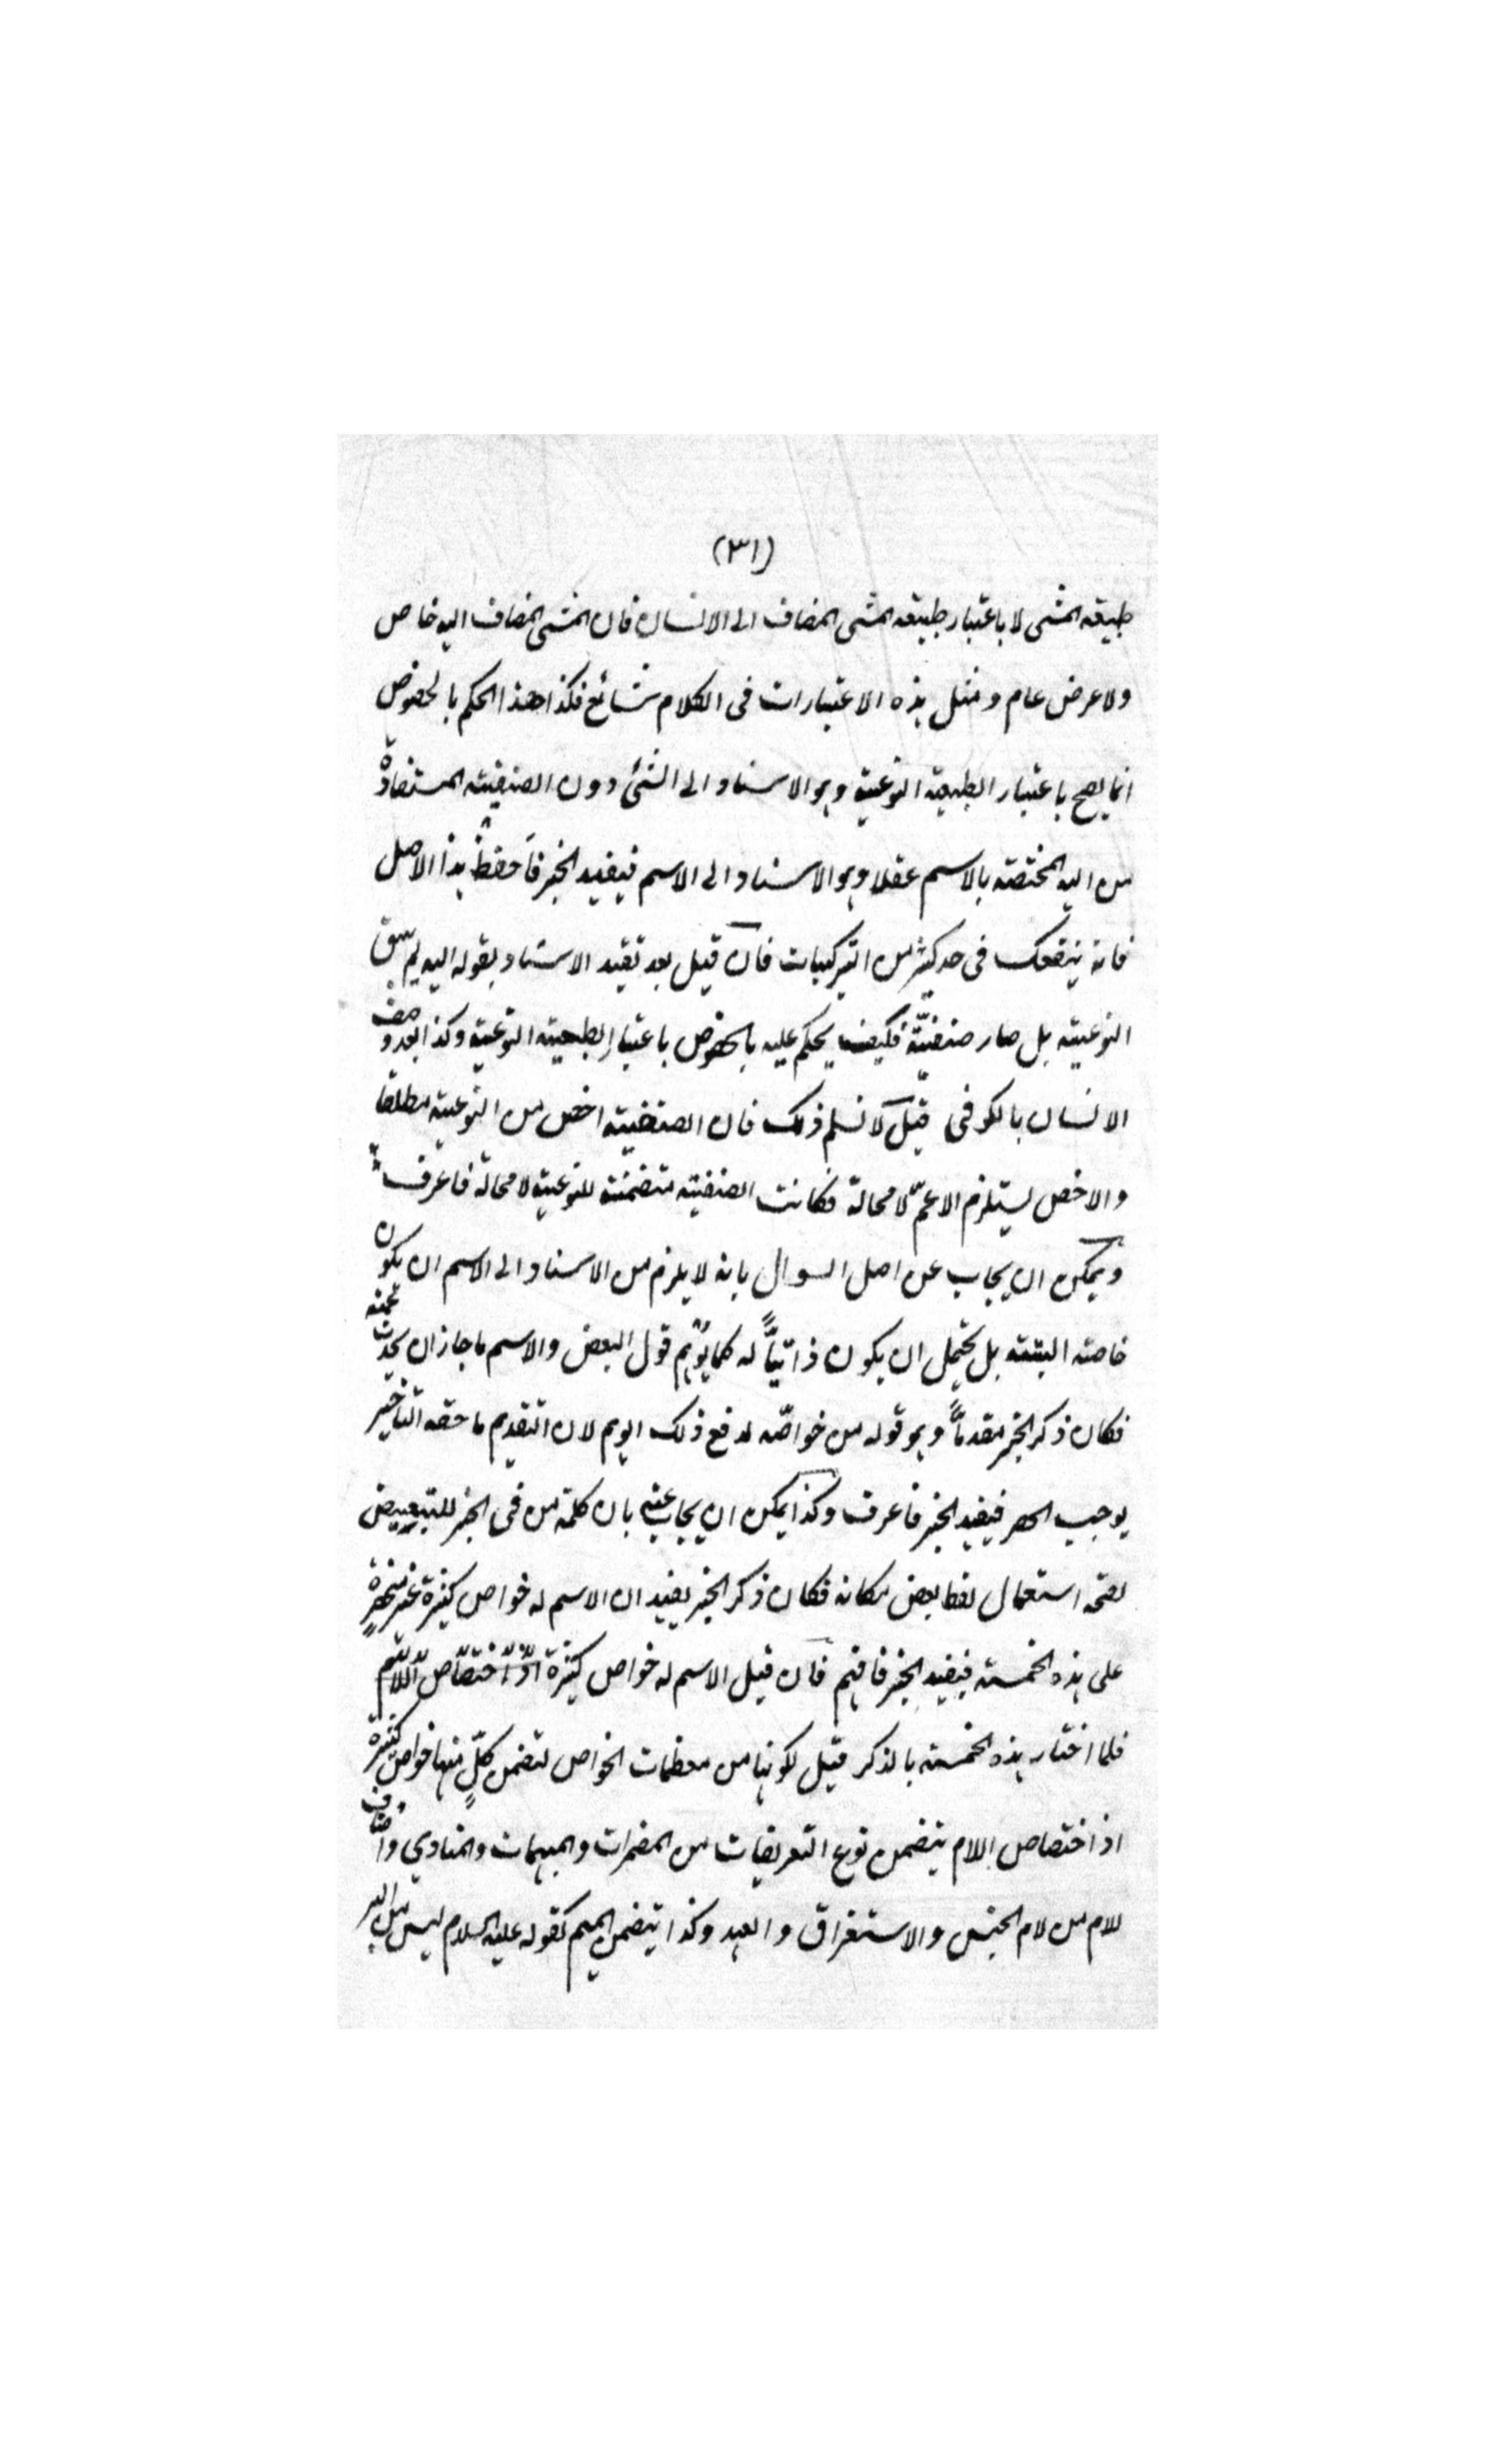 (٣١)
طبيعة المشى لا باعتبار طبيعة المشى المضاف الى الانسان فان المشى المضاف اليه خاص
ولا عرض عام ومثل هذه الاعتبارات فى الكلام شائع فكذا هذا الحكم بالخصوص
انما يصح باعتبار الطبيعة النوعية وهو الاسناد الى الشئ دون الصنفية المستفادة
من اليه المختصة بالاسم عقلا وهو الاسناد الى الاسم فيفيد الخبر فاحفظ هذا الاصل
فانه ينفعك فى حد كثير من التركيبات فان قيل بعد تقيد الاسناد بقوله اليه لم يبق
النوعية بل صار صنفيّة فكيف يحكم عليه بالخصوص باعتبار الطبيعة النوعية وكذا بعد وصف
الانسان بالكوفى قيل لا نسلم ذلك فان الصنفية اخص من النوعية مطلقا
والاخص يستلزم الاعمّ لا محالة فكانت الصنفية متضمنة للنوعية لا محالة فاعرف
ويمكن ان يجاب عن اصل السوال بانه لا يلزم من الاسناد الى الاسم ان يكون
خاصة البتة بل يحتمل ان يكون ذاتيّاً له كما يوهم قول البعض والاسم ما جاز ان يحدث عنه
فكان ذكر الخبر مقدماً وهو قوله من خواصّه لدفع ذلك الوهم لان التقديم ما حقه التاخير
يوجب الحصر فيفيد الخبر فاعرف وكذا يمكن ان يجاب عنه بان كلمة من فى الخبر للتبعيض
لصحة استعمال لفظ بعض مكانه فكان ذكر الخبر يفيد ان الاسم له خواص كثيرة غير منحصرة
على هذه الخمسة فيفيد الخبر فافهم فان قيل الاسم له خواص كثيرة اذ اختصاص اللام
فلما اختار هذه الخمسة بالذكر قيل لكونها من معظمات الخواص لتضمن كلٍّ منها خواص كثيرة
اذ اختصاص اللام يتضمن نوع التعريفات من المضمرات والمبهمات والمنادي واصناف
للام من لام الجنس والاستغراق والعهد وكذا يتضمن الميم كقوله عليه السلام ليس من البر